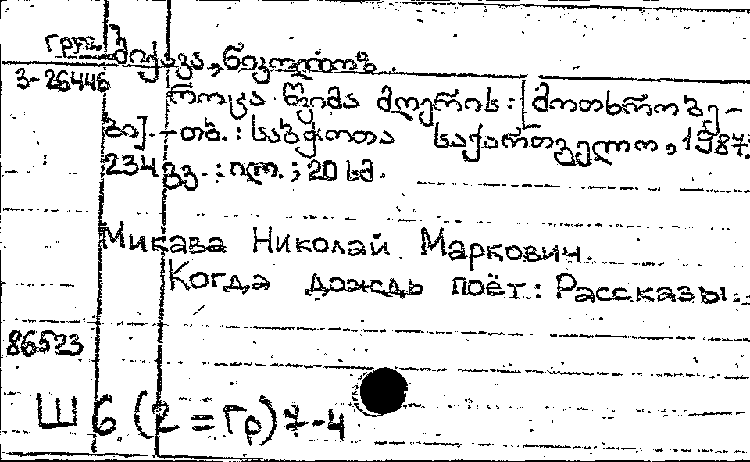 Груз.
3-26446
მიქავა, ნიკოლოზ.
როცა წვიმა მღერის: [მოთხრობე-
ბი]. - თბ. : საბჭოთა საქართველო, 1987.
234 გვ. : ილ. ; 20 სმ.
Микава Николай Маркович.
Когда дождь поёт: Рассказы.
86523
Ш 6 (2 = Гр) 7-4